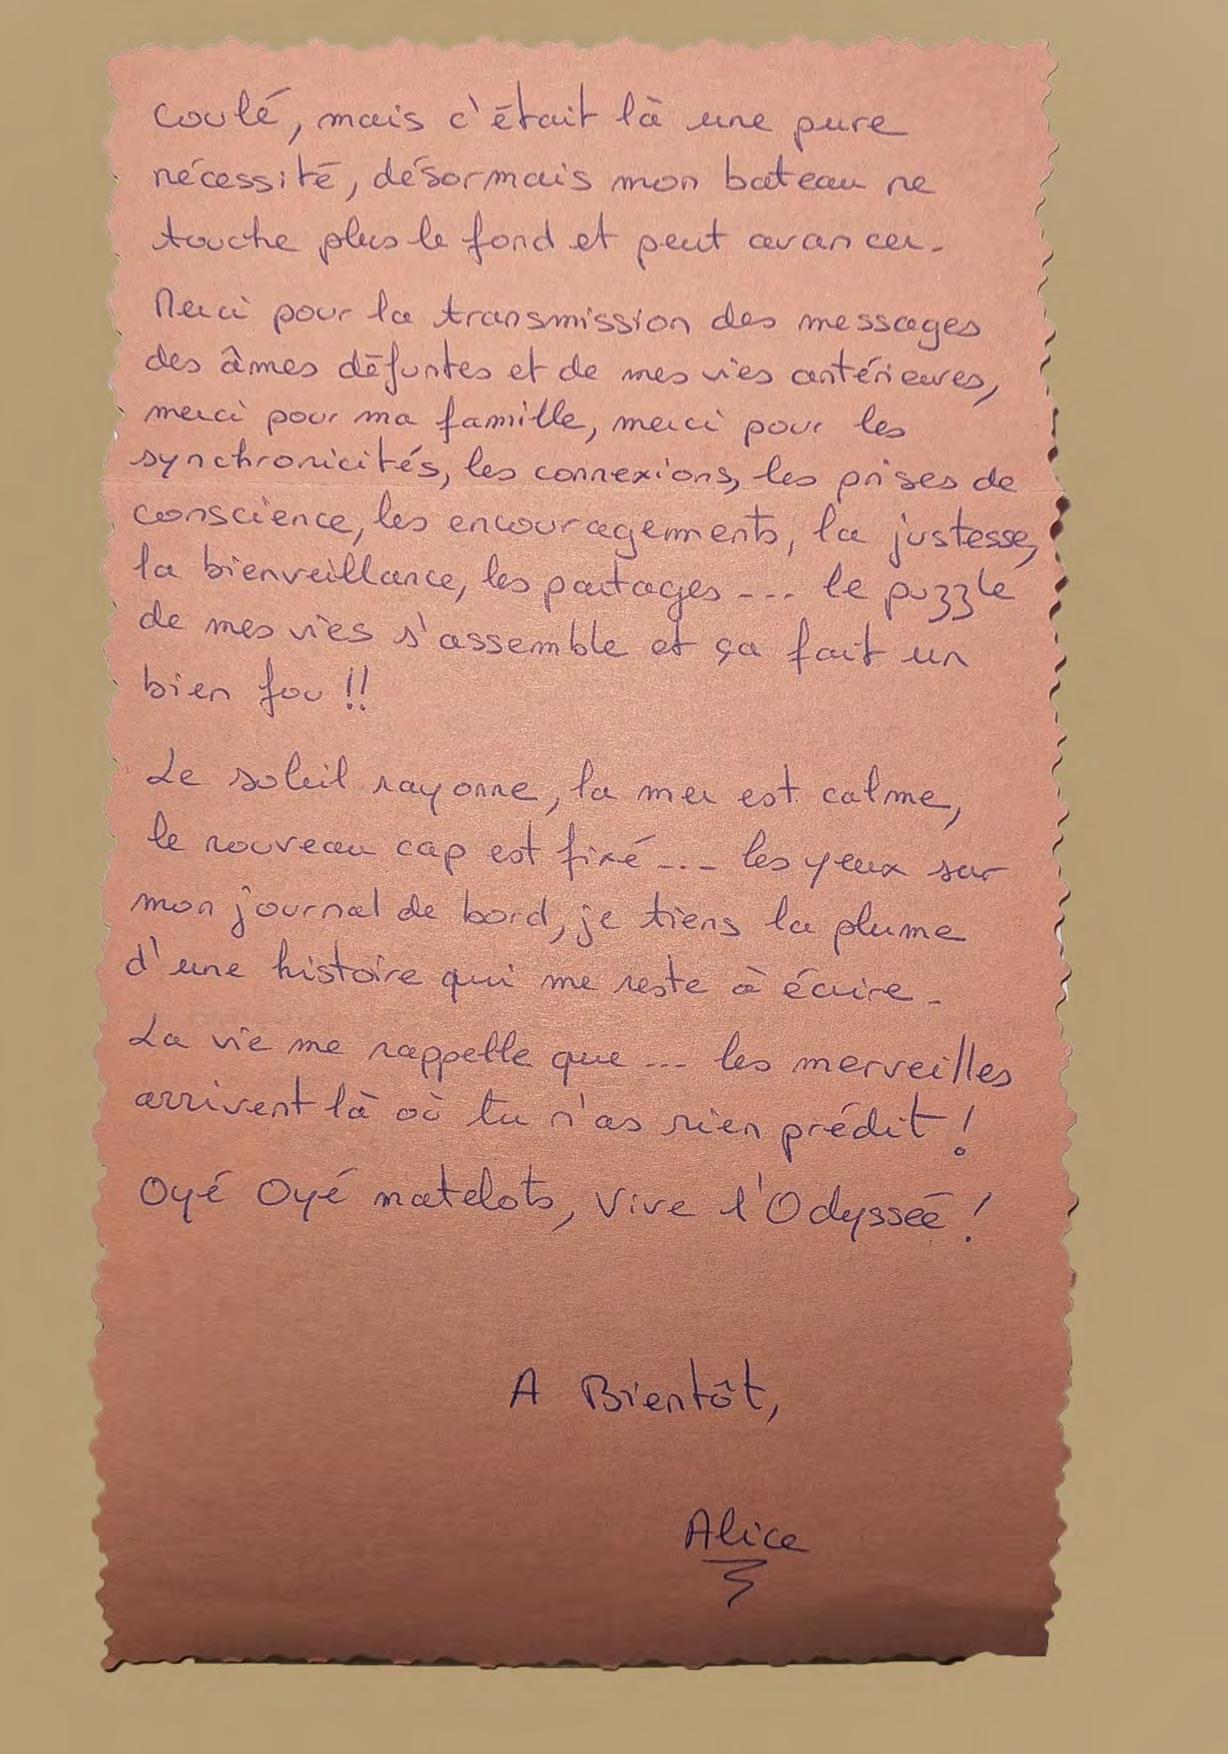 coulé, mais c'était là une pure
nécessité, désormais mon bateau ne
touche plus le fond et peut avancer.
Merci pour la transmission des messages
des âmes défuntes et de mes vies antérieures,
merci pour ma famille, merci pour les
synchronicités, les connexions, les prises de
conscience, les encouragements, la justesse,
la bienveillance, les partages --- le puzzle
de mes vies s'assemble et ça fait un
bien fou !!
Le soleil rayonne, la mer est calme,
le nouveau cap est fixé --- les yeux sur
mon journal de bord, je tiens la plume
d'une histoire qui me reste à écrire.
La vie me rappelle que --- les merveilles
arrivent là où tu n'as rien prédit !
Oyé Oyé matelots, Vive l'Odysseé !
A Bientôt,
Alice